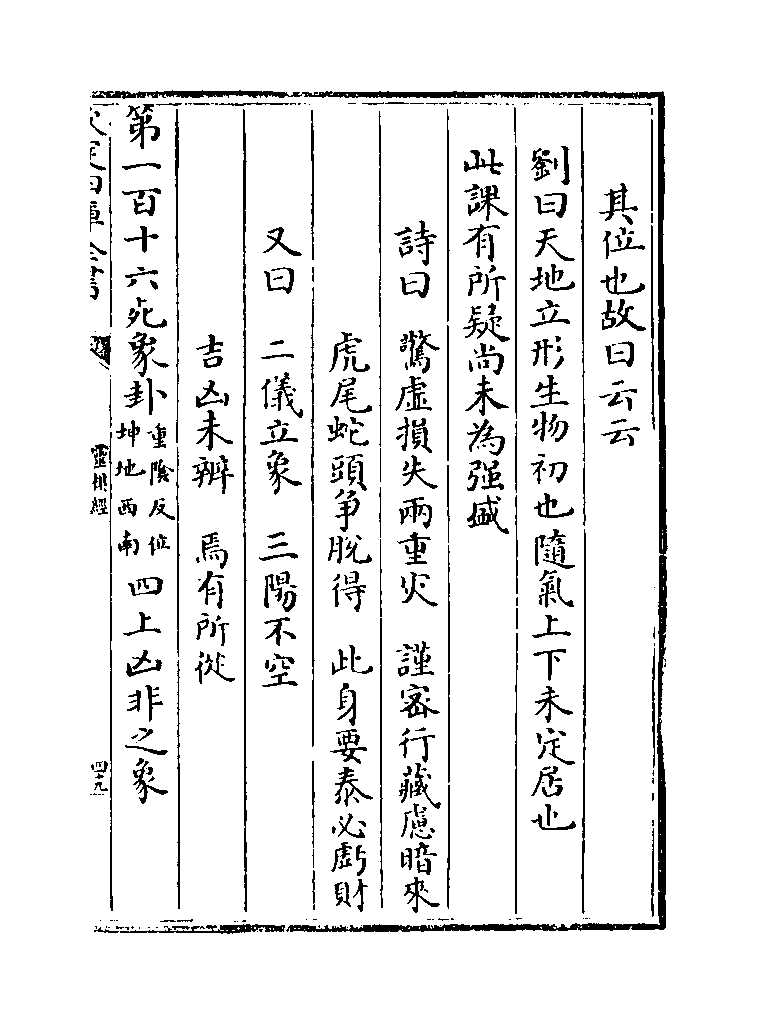 其位也故曰云云
劉曰天地立形生物初也隨氣上下未定居也
此課有所疑尚未為強盛
詩曰 驚虛損失兩重災 謹密行藏慮暗來
虎尾蛇頭爭脫得 此身要泰必虧財
又曰 二儀立象 三陽不空
吉凶未辨 焉有所從
第一百十六死象卦 重陰反位 坤地西南 四上凶非之象
欽定四庫全書
靈棋經
四十九